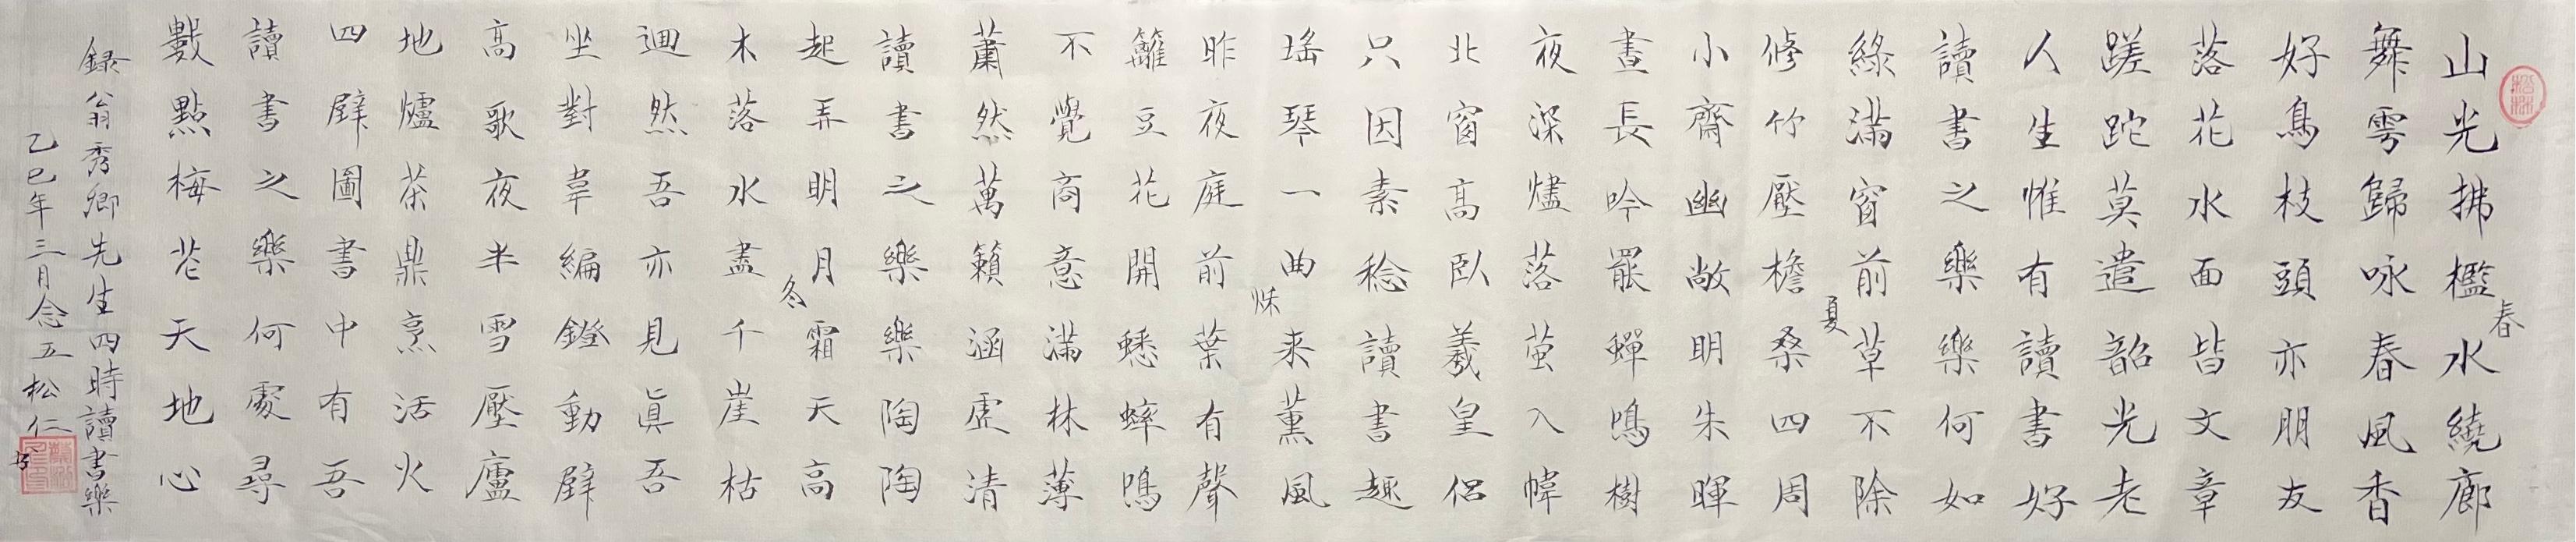 春
山光拂檻水繞廊
舞雩歸咏春風香
好鳥枝頭亦朋友
落花水面皆文章
蹉跎莫遣韶光老
人生惟有讀書好
讀書之樂樂何如
綠滿窗前草不除
夏
修竹壓檐桑四周
小齋幽敞明朱暉
晝長吟罷蟬鳴樹
夜深燼落螢入幃
北窗高臥羲皇侶
只因素稔讀書趣
瑤琴一曲來薰風
秌
昨夜庭前葉有聲
籬豆花開蟋蟀鳴
不覺商意滿林薄
蕭然萬籟涵虛清
讀書之樂樂陶陶
起弄明月霜天高
冬
木落水盡千崖枯
迥然吾亦見真吾
坐對韋編鐙動壁
高歌夜半雪壓廬
地爐茶鼎烹活火
四壁圖書中有吾
讀書之樂何處尋
數點梅花天地心
録翁秀卿先生四時讀書樂
乙巳年三月念五松仁